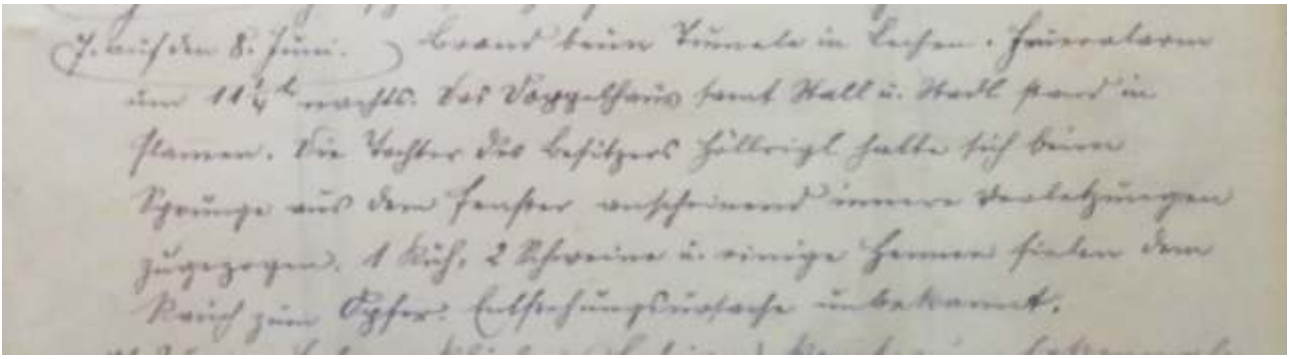 7. auf den 8. Juni. Brand beim Tunele in Lechen. Feueralarm
um 11 1/4 h nachts. Das Doppelhaus samt Stall u. Stadl stand in
Flamen. Die Tochter des Besitzers Höllrigl hatte sich beim
Sprunge aus dem Fenster anscheinend innere Verletzungen
zugezogen. 1 Kuh, 2 Schweine u. einige Hennen fielen dem
Rauch zum Opfer. Entstehungsursache unbekannt.